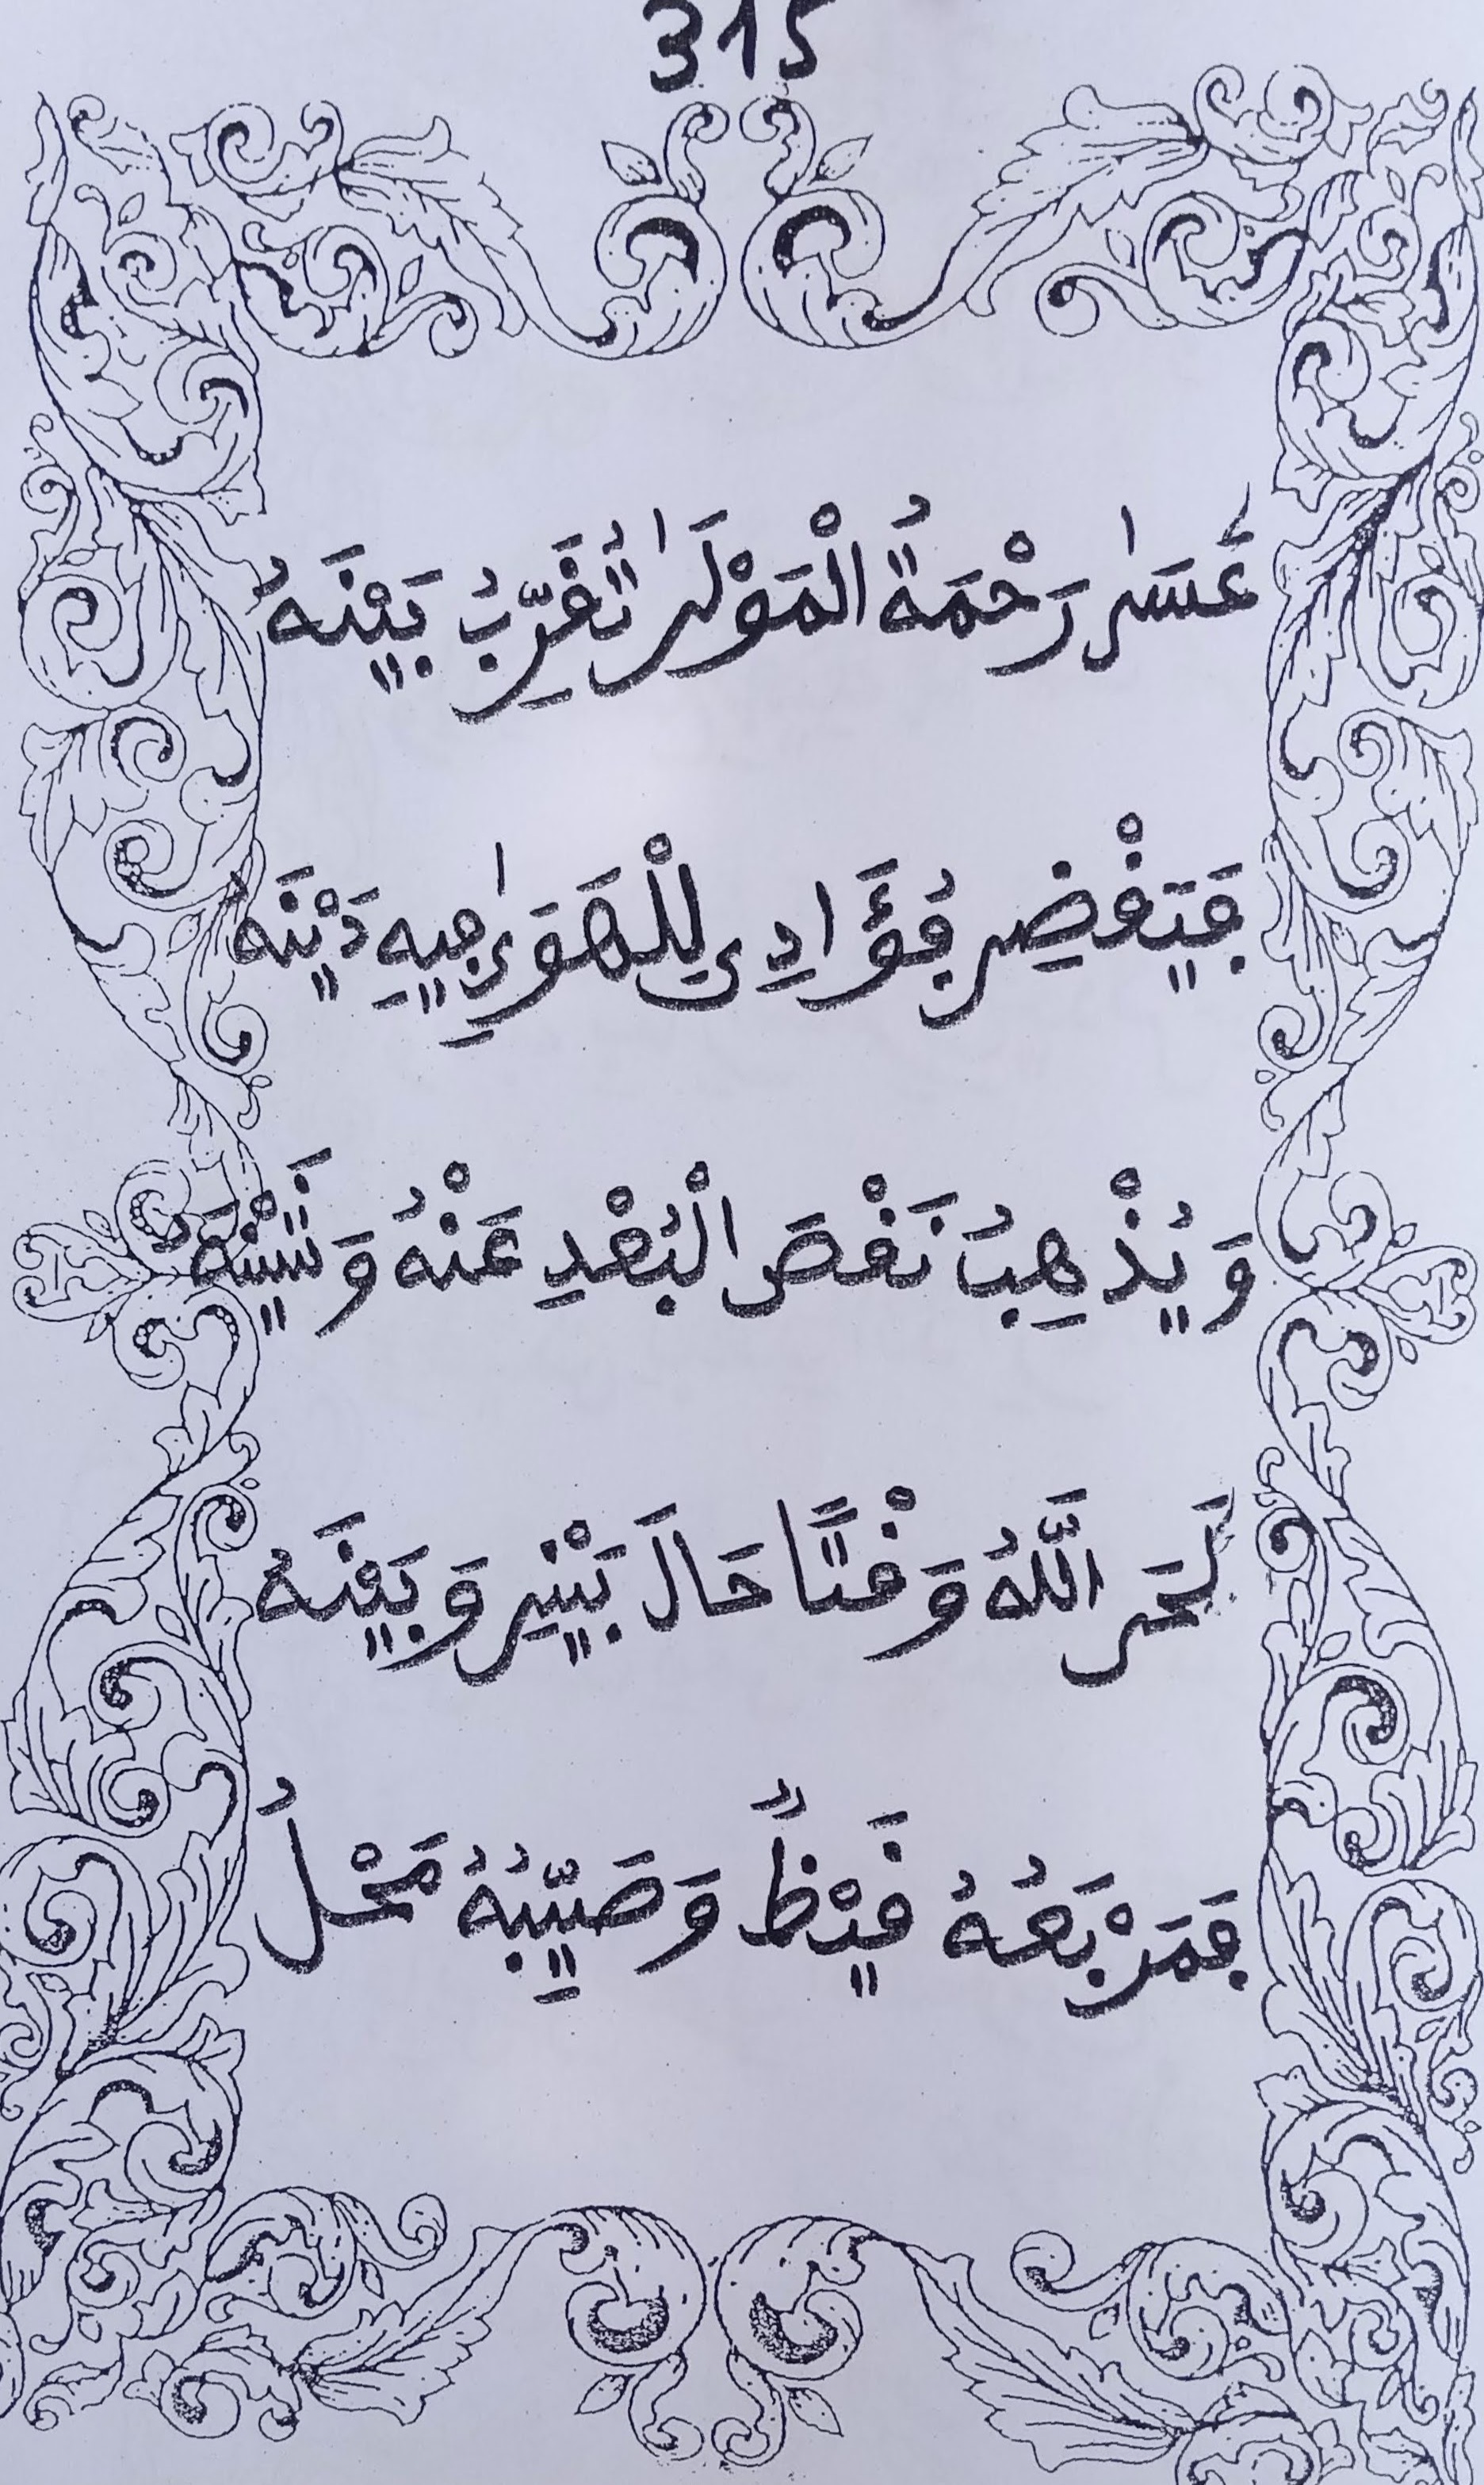 315
عَسَىٰ رَحْمَةُ الْمَوْلَىٰ تُقَرِّبُ بَيْنَهُ
فَيَقْضِي فُؤَادِي لِلْهَوَىٰ فِيهِ دَيْنَهُ
وَيُذْهِبُ نَقْصَ الْبُعْدِ عَنْهُ وَشَيْنَهُ
لَحَى اللَّهُ وَقْتًا حَالَ بَيْنِي وَبَيْنَهُ
فَمَرْبَعُهُ قَيْظٌ وَصَيِّبُهُ مَحْلُ